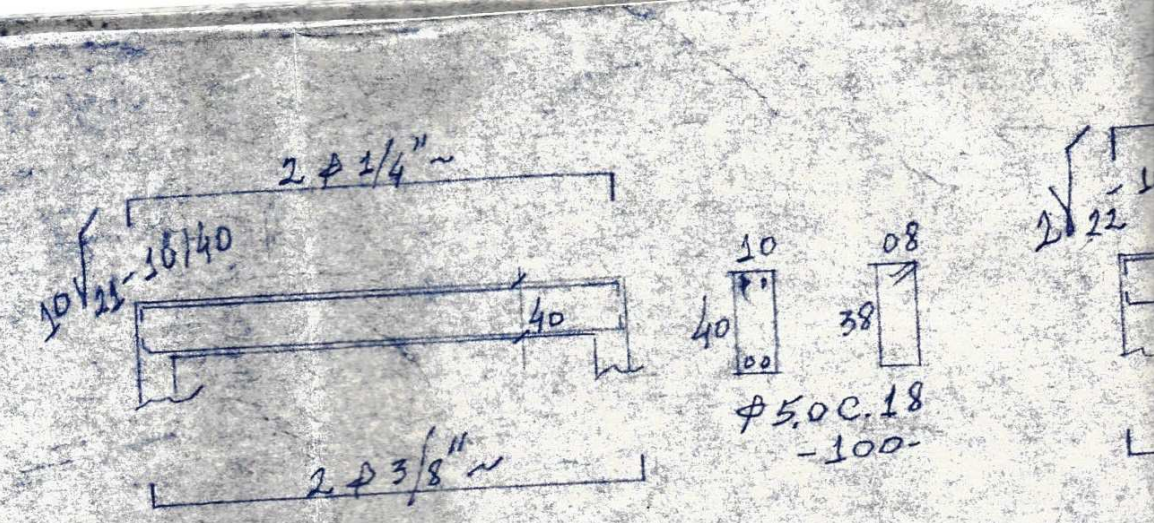 2 ϕ 1/4" ~
10 V 21-10/40
40
2 ϕ 3/8" ~
10
40
08
38
ϕ 5,0 C. 18
-100-
2 V 22-1